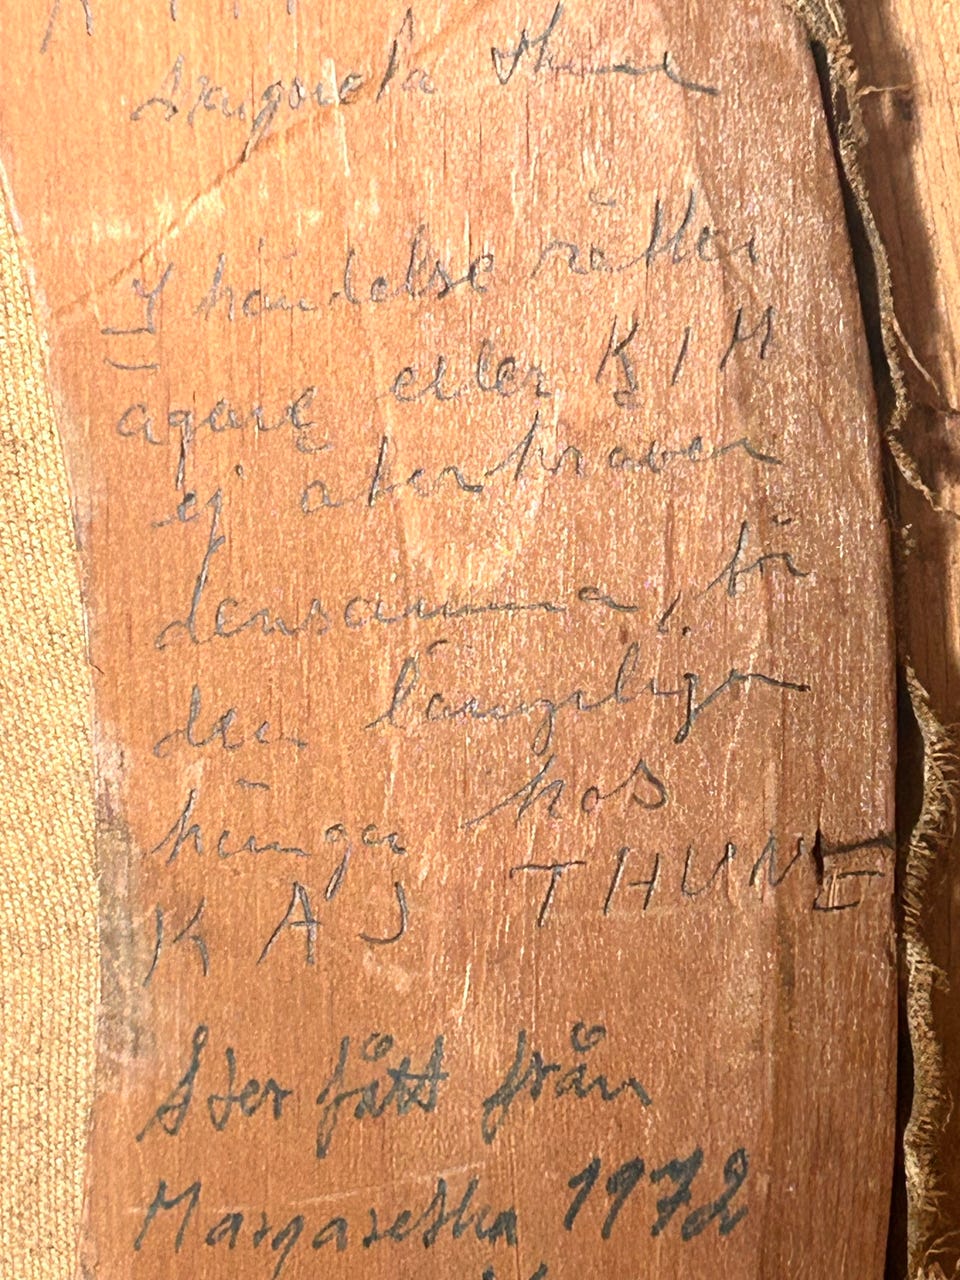 Margareta Thune
I händelse rätter
ägare eller KIM
ej återkräver
densamma, bör
den lämpligen
hänga hos
KAJ THUNE
Åter fått från
Margaretha 1972